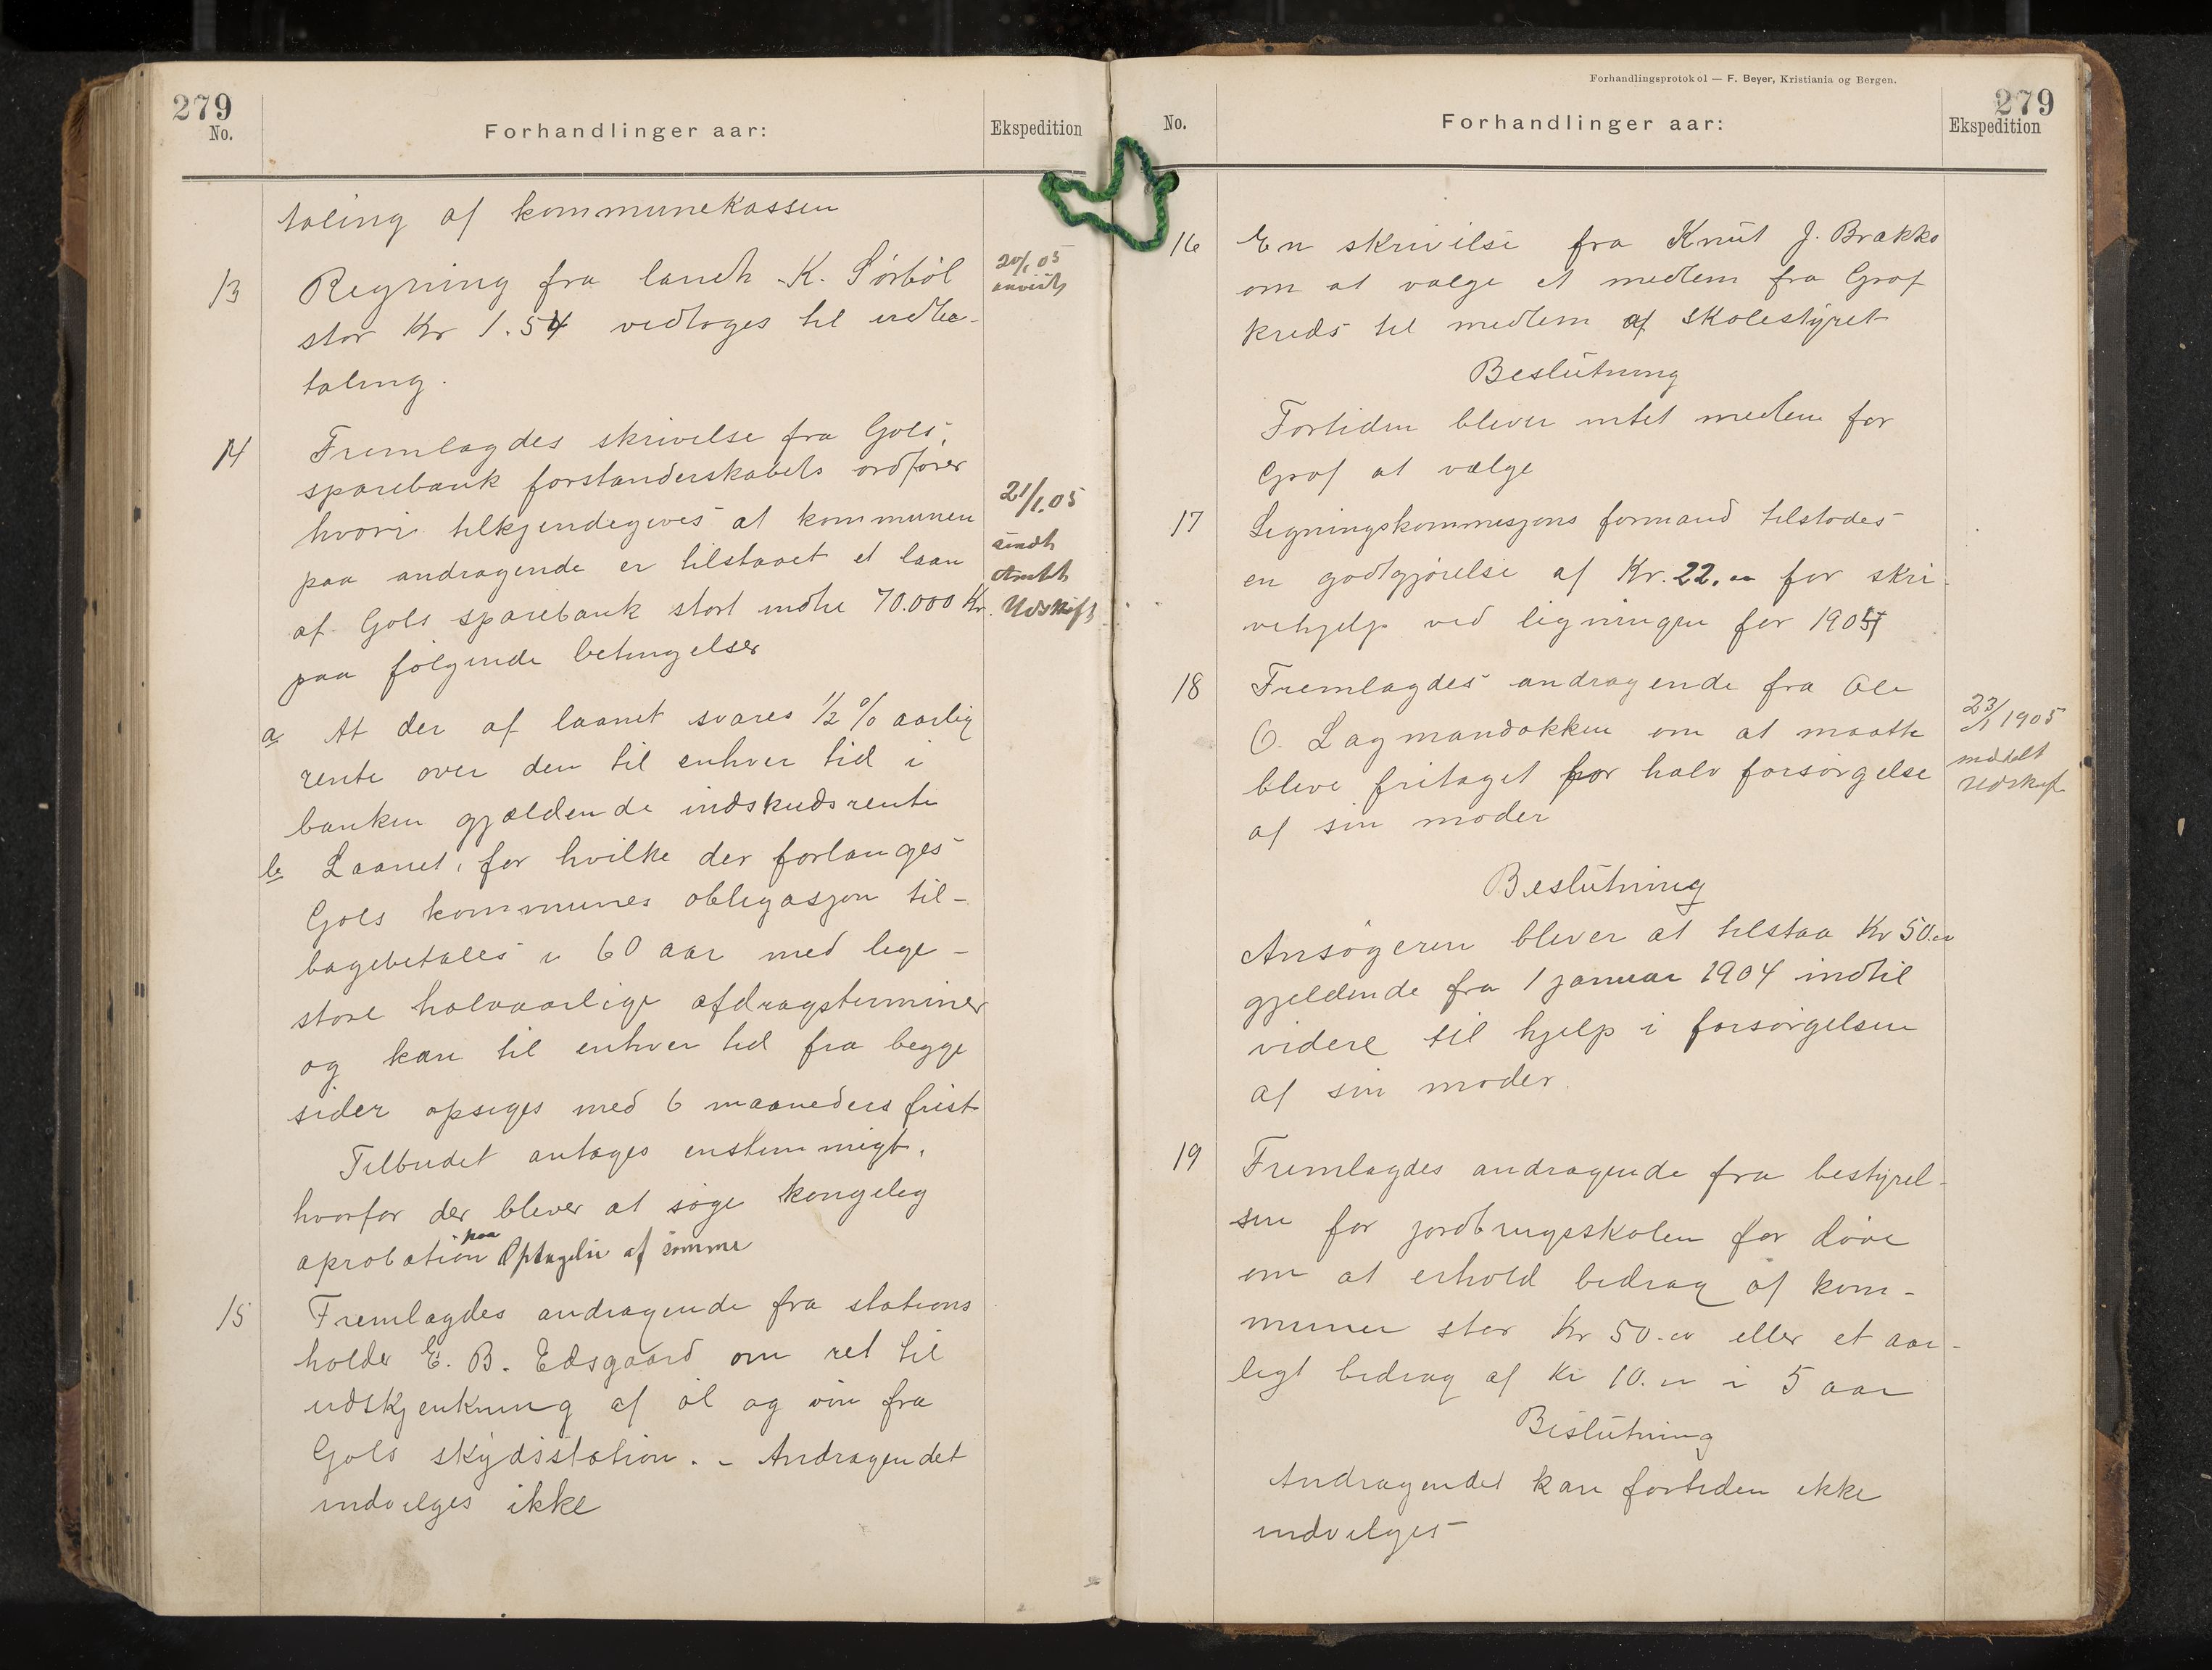 279
No.
Forhandlinger aar:
Ekspedition
taling af kommunekassen
13 Regning fra landh. K. Sørbøl
stor Kr 1.54 vedtoges til udbe-
taling.
20/1 05
anvist
14 Fremlagdes skrivelse fra Gols
sparebank forstanderskabets ordfører
hvori tilkjendegives at kommunen
paa andragende er tilstaaet et laan
af Gols sparebank stort indtil 70.000 Kr.
paa følgende betingelser
21/1.05
sendt
Udskrift
a At der af laanet svares ½ % aarlig
rente over den til enhver tid i
banken gjældende indskudsrente
b Laanet, for hvilke der forlanges
Gols kommunes obligasjon til-
bagebetales i 60 aar med lige-
store halvaarlige afdragsterminer
og kan til enhver tid fra begge
sider opsiges med 6 maaneders frist
Tilbudet antages enstemmigt,
hvorfor der bliver at søge kongelig
aprobation paa Optagelse af samme
15 Fremlagdes andragende fra stations
holder E. B. Edsgaard om ret til
udskjenkning af øl og vin fra
Gols skydsstation. - Andragendet
indvilges ikke
Forhandlingsprotokol — F. Beyer, Kristiania og Bergen.
279
No.
Forhandlinger aar:
Ekspedition
16 En skrivilse fra Knut J. Brække
om at vælge et medlem fra Grøf
kreds til medlem af skolestyret
Beslutning
Fortiden bliver intet medlem for
Grøf at vælge
17 Ligningskommisjons formand tilstodes
en godtgjørelse af Kr. 22.00 for skri-
vehjelp ved ligningen for 1905
18 Fremlagdes andragende fra Ole
O. Lagmandsokken om at maatte
blive fritaget for halv forsørgelse
af sin moder
23/1 1905
meddelt
Udskrift
Beslutning
Ansøgeren bliver at tilstaa Kr 50.00
gjeldende fra 1 januar 1904 indtil
videre til hjelp i forsørgelsen
af sin moder.
19 Fremlagdes andragende fra bestyrel-
sen for jordbrugsskolen for døve
om at erhold bidrag af kom-
munen stor Kr 50.00 eller et aar-
ligt bidrag af Kr 10.00 i 5 aar
Beslutning
Andragendet kan fortiden ikke
indvilges